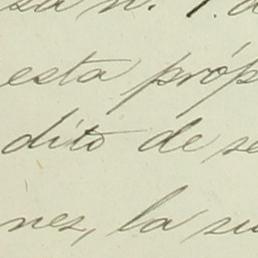 za n. 1. d
esta próp
dito de se
nez, la su